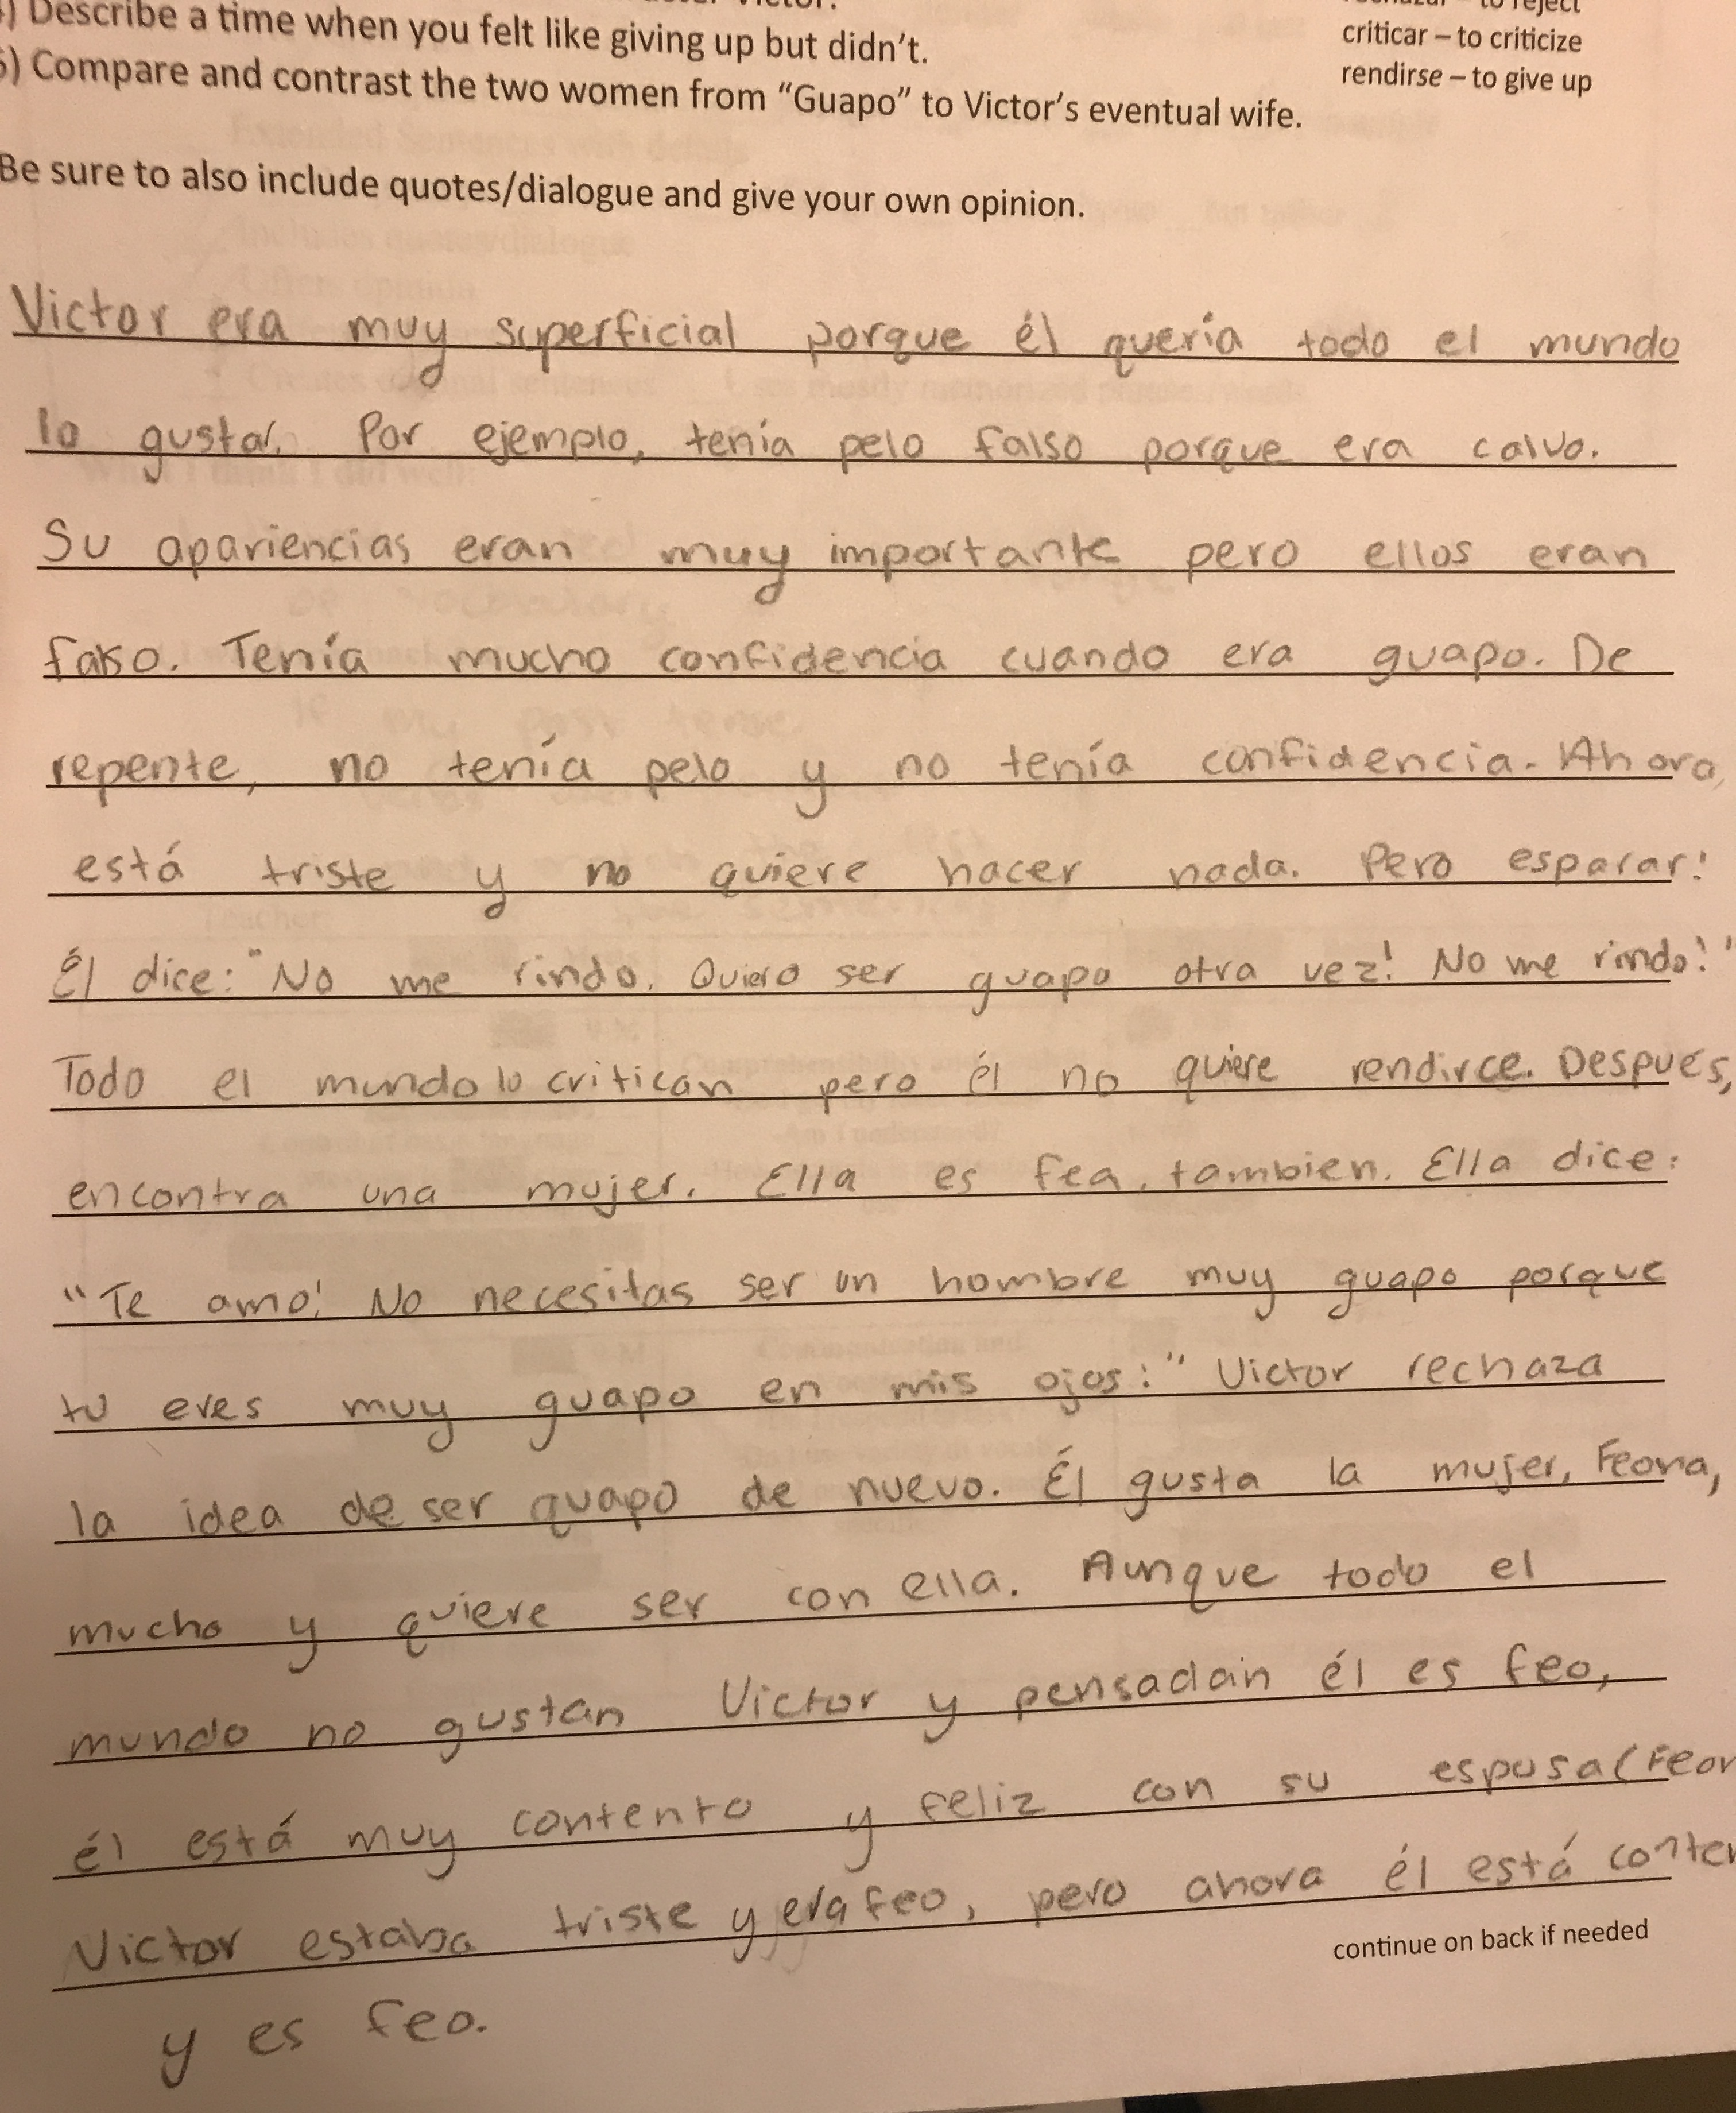 ) Describe a time when you felt like giving up but didn't.
) Compare and contrast the two women from “Guapo” to Victor's eventual wife.
to reject
criticar – to criticize
rendirse – to give up
Be sure to also include quotes/dialogue and give your own opinion.
Victor era muy superficial porque él quería todo el mundo
lo gustar. Por ejemplo, tenía pelo falso porque era calvo.
Su apariencias eran muy importante pero ellos eran
falso. Tenía mucho confidencia cuando era guapo. De
repente, no tenía pelo y no tenía confidencia. Ahora,
está triste y no quiere hacer nada. Pero esparar!
Él dice: "No me rindo. Quiero ser guapo otra vez! No me rindo!"
Todo el mundo lo critican pero él no quiere rendirce. Después,
encontra una mujer. Ella es fea, tambien. Ella dice:
"Te amo! No necesitas ser un hombre muy guapo porque
tu eres muy guapo en mis ojos!" Victor rechaza
la idea de ser guapo de nuevo. Él gusta la mujer, Feona,
mucho y quiere ser con ella. Aunque todo el
mundo no gustan Victor y pensadan él es feo,
él está muy contento y feliz con su esposa (Feon
Victor estaba triste y era feo, pero ahora él está conten
continue on back if needed
y es feo.